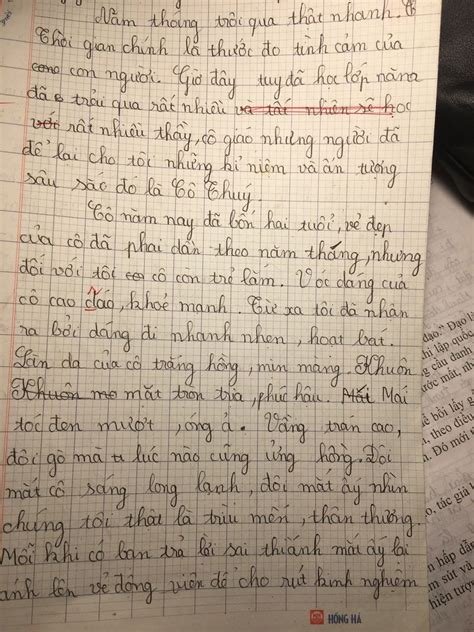 Năm tháng trôi qua thật nhanh.
Thời gian chính là thước đo tình cảm của
con người. Giờ đây tuy đã học lớp năm
đã trải qua rất nhiều và tất nhiên sẽ học
với rất nhiều thầy, cô giáo nhưng người đã
để lại cho tôi những kỉ niệm và ấn tượng
sâu sắc đó là Cô Thuý.
Cô năm nay đã bốn hai tuổi, vẻ đẹp
của cô đã phai dần theo năm tháng, nhưng
đối với tôi cô còn trẻ lắm. Vóc dáng của
cô cao dáo, khoẻ mạnh. Từ xa tôi đã nhận
ra bởi dáng đi nhanh nhẹn, hoạt bát.
Làn da của cô trắng hồng, mịn màng. Khuôn
Khuôn mo mặt tròn trịa, phúc hậu. Mái Mái
tóc đen mượt, óng ả. Vầng trán cao,
đôi gò má lúc nào cũng ửng hồng. Đôi
mắt cô sáng long lanh, đôi mắt ấy nhìn
chúng tôi thật là trìu mến, thân thương.
Mỗi khi có bạn trả lời sai thì ánh mắt ấy lại
ánh lên vẻ động viên để cho rút kinh nghiệm
HỒNG HÀ
đạo." Đạo lí